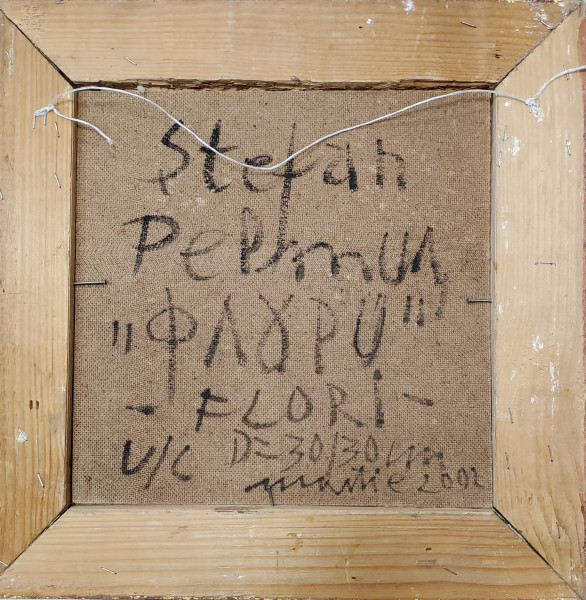 Ștefan
Pelmuș
„ФЛȢРИ"
- FLORI -
U/C D=30/30 cm
martie 2002